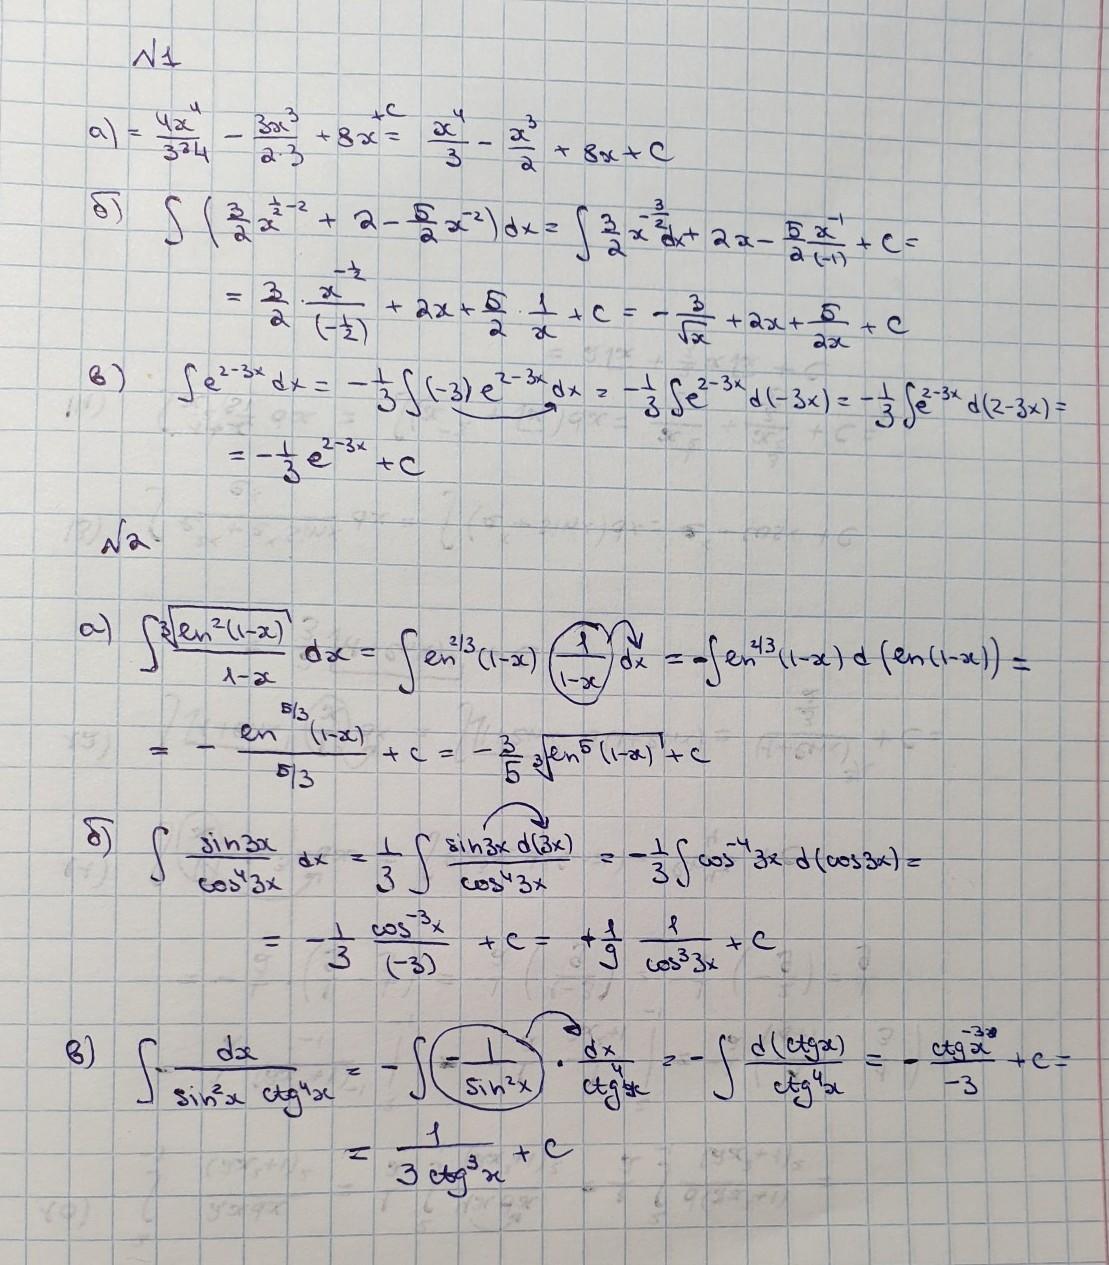 №1
а) = 4x⁴/(3·4) − 3x³/(2·3) + 8x + C = x⁴/3 − x³/2 + 8x + C
б) ∫(3/2 x^(1/2−2) + 2 − 5/2 x⁻²)dx = ∫3/2 x^(−3/2)dx + 2x − 5/2 x⁻¹/(−1) + C =
= 3/2 · x^(−1/2)/(−1/2) + 2x + 5/2 · 1/x + C = −3/√x + 2x + 5/(2x) + C
в) ∫e^(2−3x)dx = −1/3∫(−3)e^(2−3x)dx = −1/3∫e^(2−3x)d(−3x) = −1/3∫e^(2−3x)d(2−3x) =
= −1/3 e^(2−3x) + C
№2.
а) ∫ ∛(ln²(1−x))/(1−x) dx = ∫ln^(2/3)(1−x) (1/(1−x)) dx = −∫ln^(2/3)(1−x) d(ln(1−x)) =
= − ln^(5/3)(1−x)/(5/3) + C = −3/5 ∛(ln⁵(1−x)) + C
б) ∫ sin3x/cos⁴3x dx = 1/3 ∫ sin3x d(3x)/cos⁴3x = −1/3∫cos⁻⁴3x d(cos3x) =
= −1/3 cos⁻³x/(−3) + C = +1/9 1/cos³3x + C
в) ∫ dx/(sin²x ctg⁴x) = −∫(−1/sin²x) · dx/ctg⁴x = −∫ d(ctgx)/ctg⁴x = − ctg⁻³x/−3 + C =
= 1/(3 ctg³x) + C